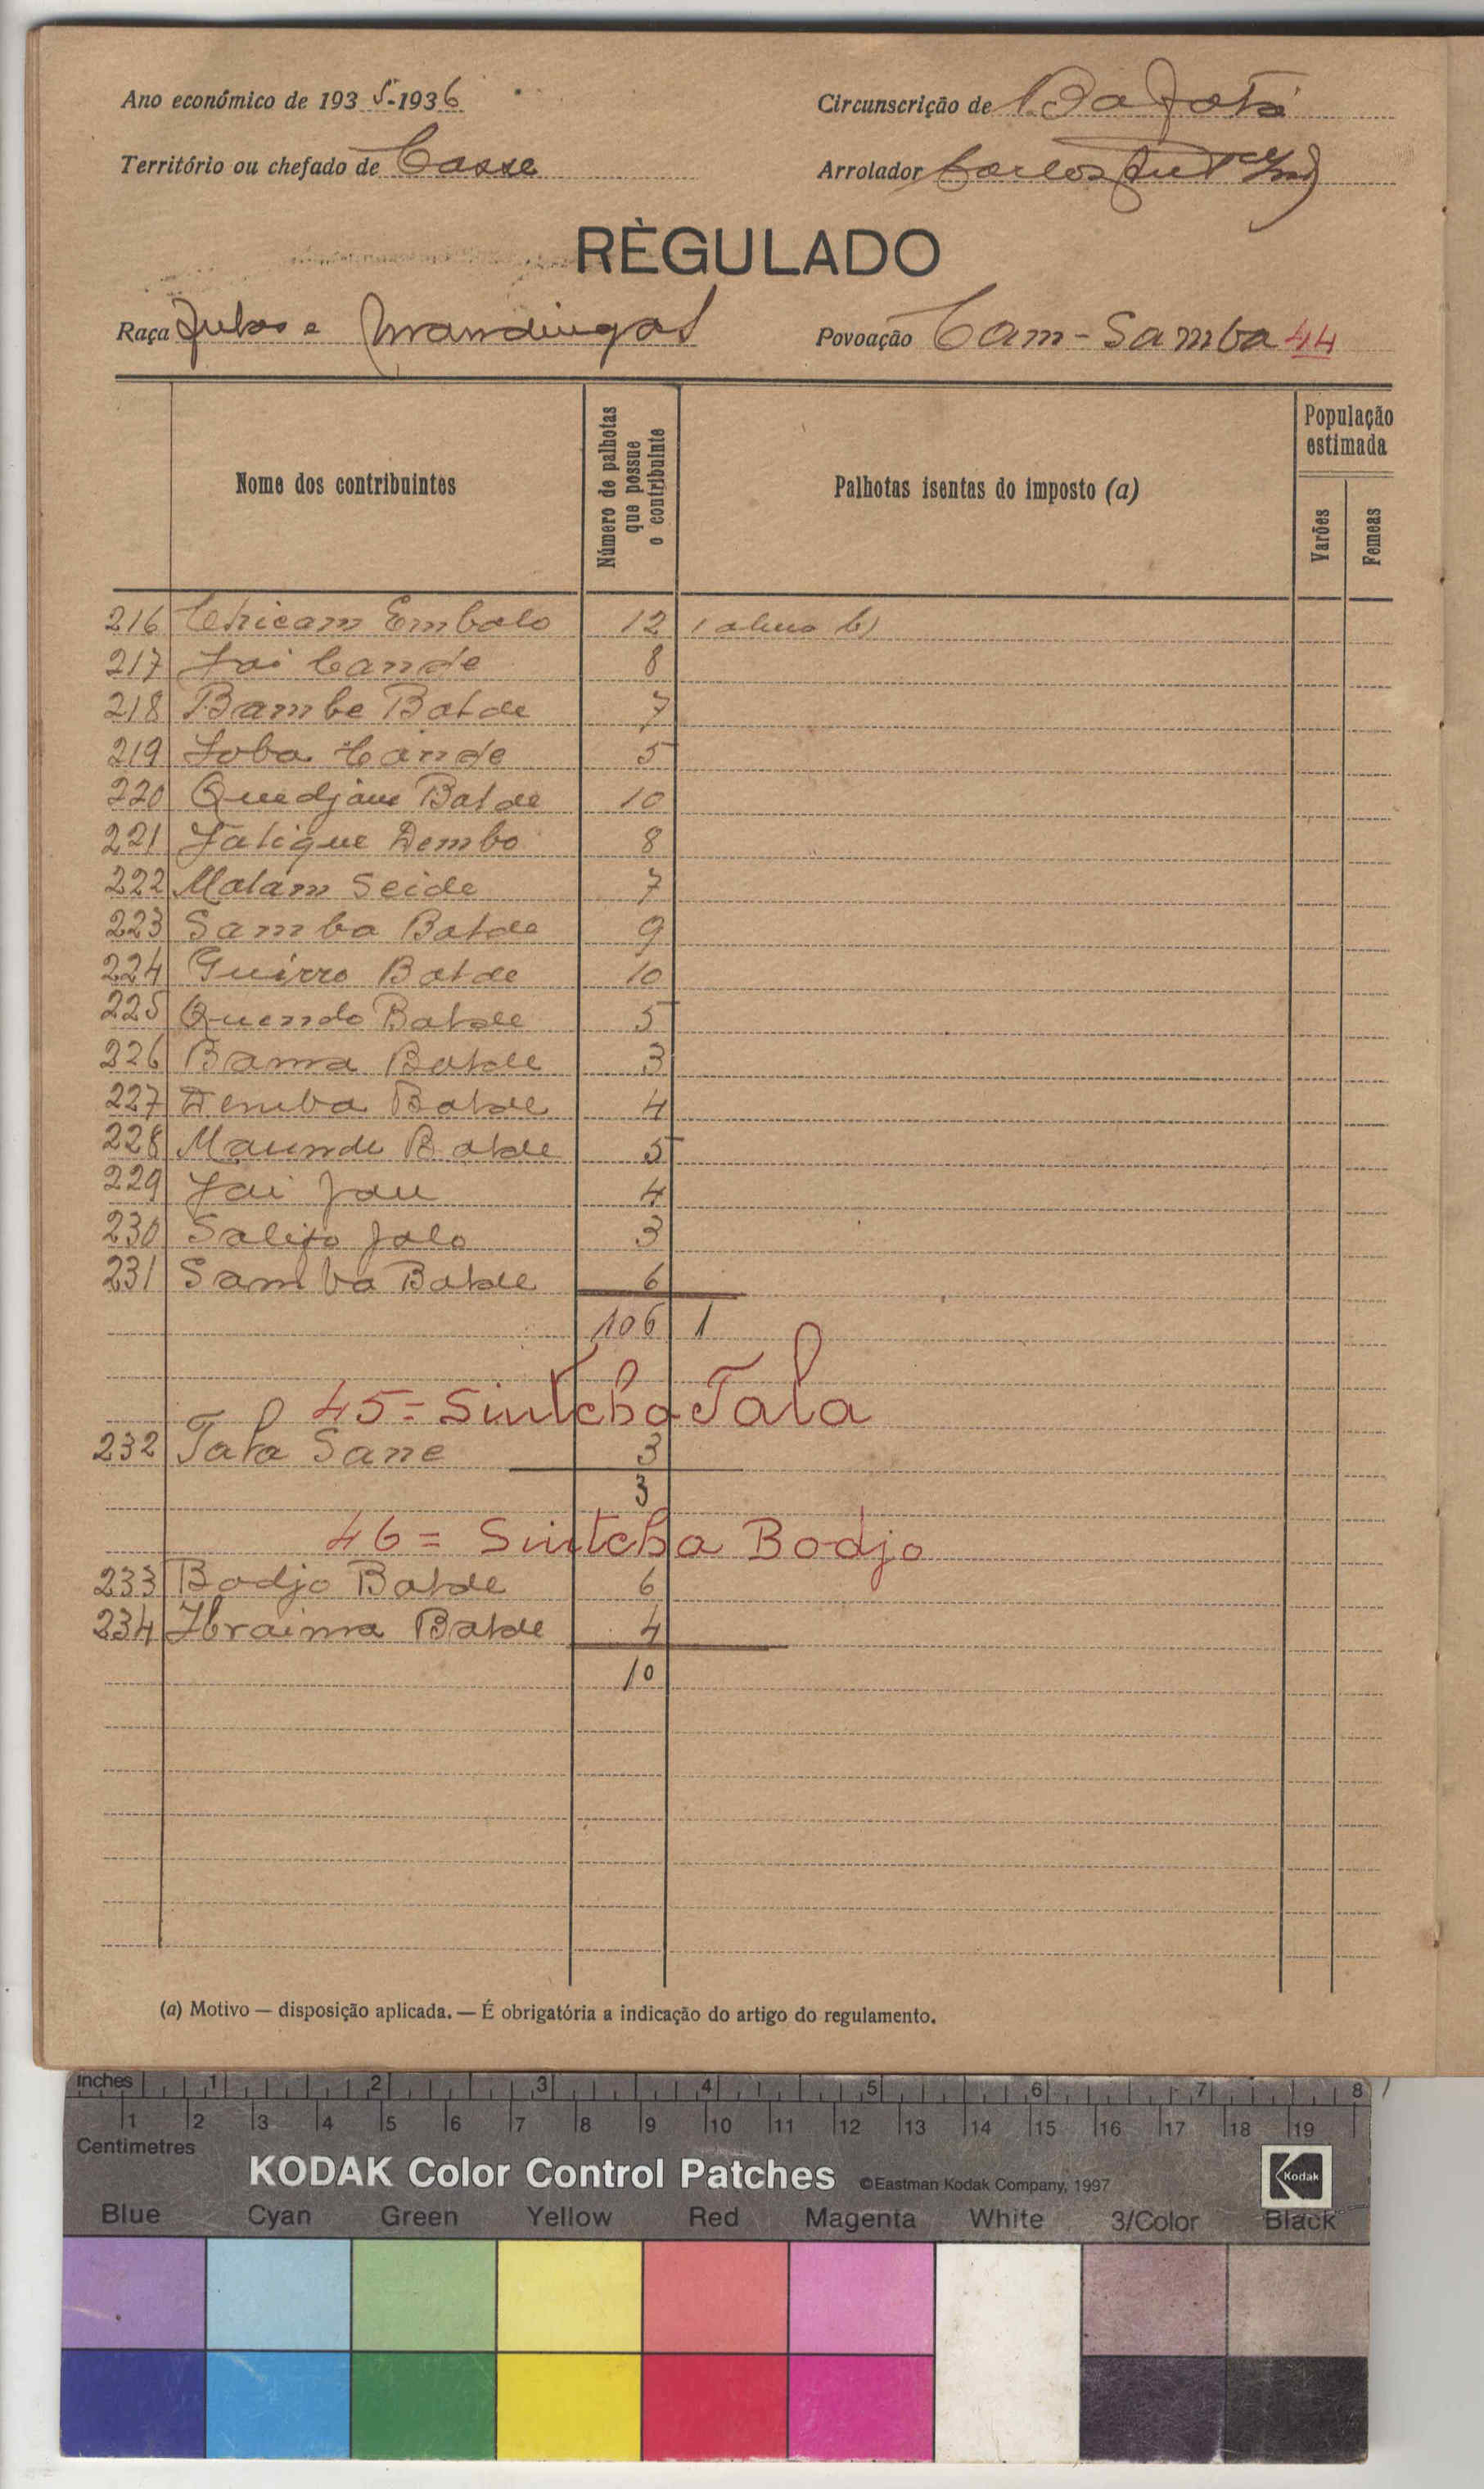 Ano económico de 1935-1936
Circunscrição de Bafatá
Território ou chefado de Casse
Arrolador Carlos
RÈGULADO
Raça Fulas e Mandingas
Povoação Cam-Samba 44
Nome dos contribuintes
Número de palhotas que possue o contribuinte
Palhotas isentas do imposto (a)
População estimada
Varões
Femeas
216 Chicam Embalo 12 1 b)
217 Jai Cande 8
218 Bambe Balde 7
219 Joba Cande 5
220 Quedjam Balde 10
221 Fatique Dembo 8
222 Malam Seide 7
223 Samba Balde 9
224 Guirro Balde 10
225 Quendo Balde 5
226 Bama Balde 3
227 Demba Balde 4
228 Maunde Balde 5
229 Jai Jau 4
230 Salifo Jalo 3
231 Samba Balde 6
106 1
45 = Sintcha Tala
232 Tala Sane 3
3
46 = Sintcha Bodjo
233 Bodjo Balde 6
234 Ibraima Balde 4
10
(a) Motivo — disposição aplicada. — É obrigatória a indicação do artigo do regulamento.
inches 1 2 3 4 5 6 7 8
1 2 3 4 5 6 7 8 9 10 11 12 13 14 15 16 17 18 19
Centimetres
KODAK Color Control Patches ©Eastman Kodak Company, 1997 Kodak
Blue Cyan Green Yellow Red Magenta White 3/Color Black